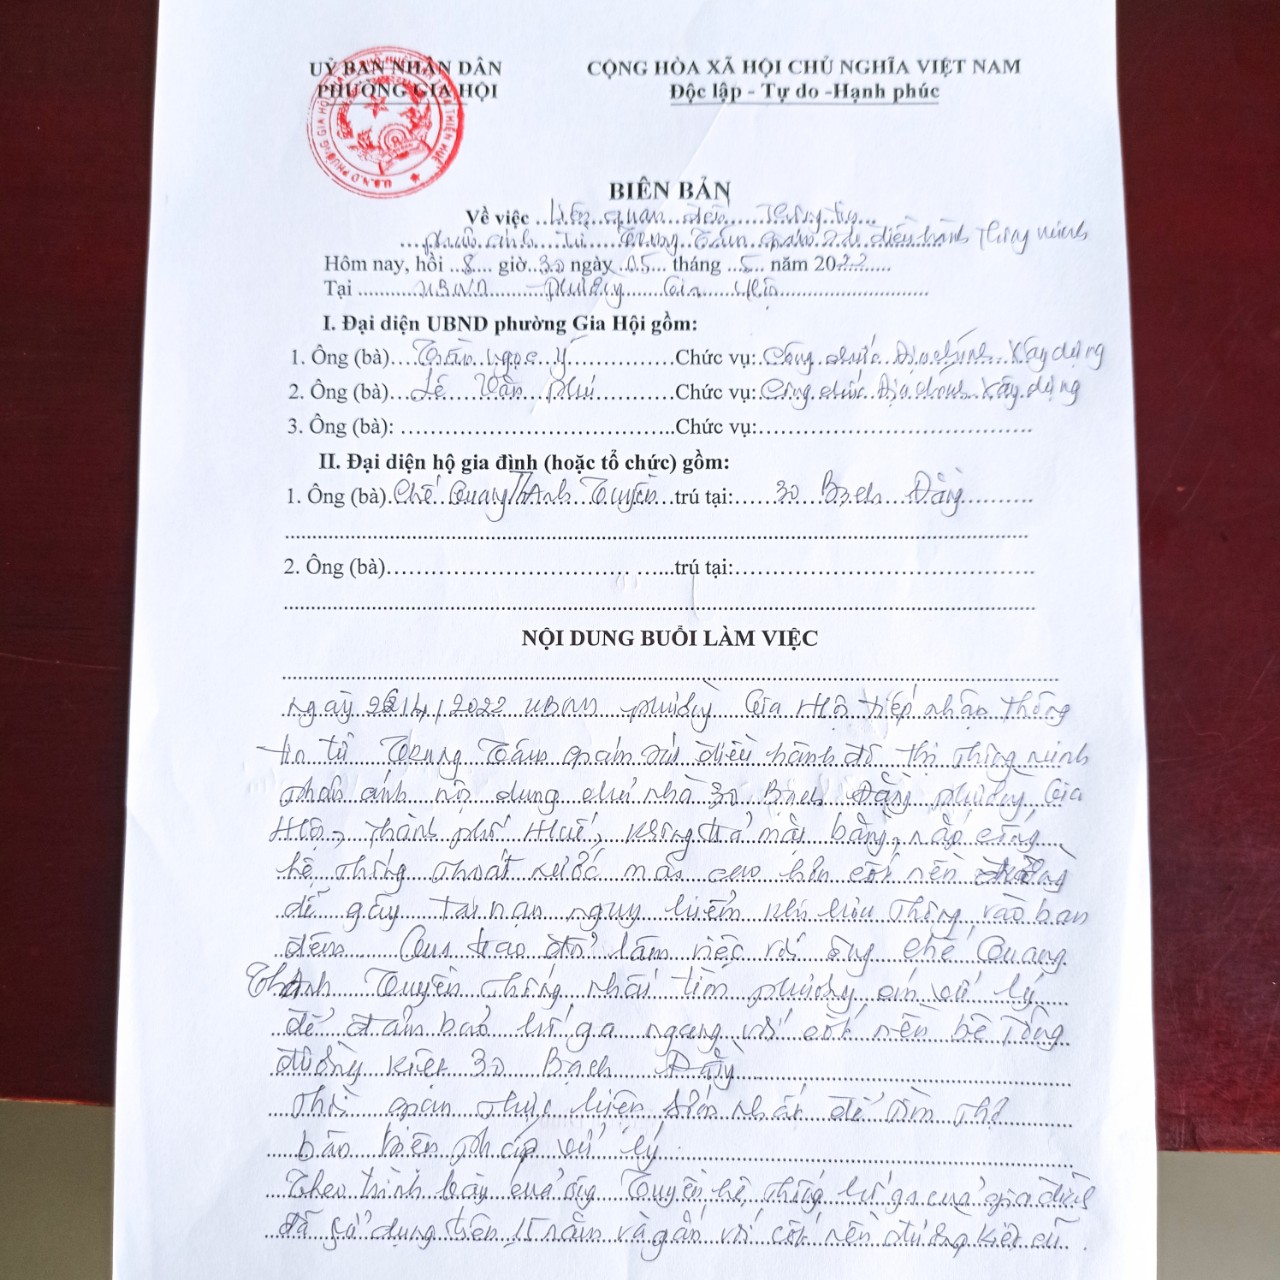 UỶ BAN NHÂN DÂN
PHƯỜNG GIA HỘI
CỘNG HÒA XÃ HỘI CHỦ NGHĨA VIỆT NAM
Độc lập - Tự do -Hạnh phúc
BIÊN BẢN
Về việc liên quan đến thông tin
phản ánh từ Trung Tâm giám sát điều hành thông minh
Hôm nay, hồi 8 giờ 30 ngày 05 tháng 5 năm 2022
Tại UBND phường Gia Hội
I. Đại diện UBND phường Gia Hội gồm:
1. Ông (bà) Trần Ngọc Ý Chức vụ: Công chức Địa chính Xây dựng
2. Ông (bà) Lê Văn Phú Chức vụ: Công chức Địa chính Xây dựng
3. Ông (bà): Chức vụ:
II. Đại diện hộ gia đình (hoặc tổ chức) gồm:
1. Ông (bà) Chế Quang Thanh Tuyền trú tại: 30 Bạch Đằng
2. Ông (bà) trú tại:
NỘI DUNG BUỔI LÀM VIỆC
ngày /4/2022 UBND phường Gia Hội tiếp nhận thông
tin từ Trung Tâm giám sát điều hành đô thị thông minh
phản ánh nội dung chủ nhà 30 Bạch Đằng phường Gia
Hội, thành phố Huế, không trả mặt bằng, nắp cống
hệ thống thoát nước cao hơn cốt nền đường
dễ gây tai nạn nguy hiểm khi lưu thông vào ban
đêm. Qua trao đổi làm việc với ông Chế Quang
Thanh Tuyền thống nhất tìm phương án xử lý
để đảm bảo hố ga ngang với cốt nền bê tông
đường kiệt 30 Bạch Đằng
Thời gian thực hiện sớm nhất để tìm thợ
bàn biện pháp xử lý.
Theo trình bày của ông Tuyền hệ thống hố ga của gia đình
đã sử dụng trên 15 năm và gắn với cốt nền đường kiệt cũ.